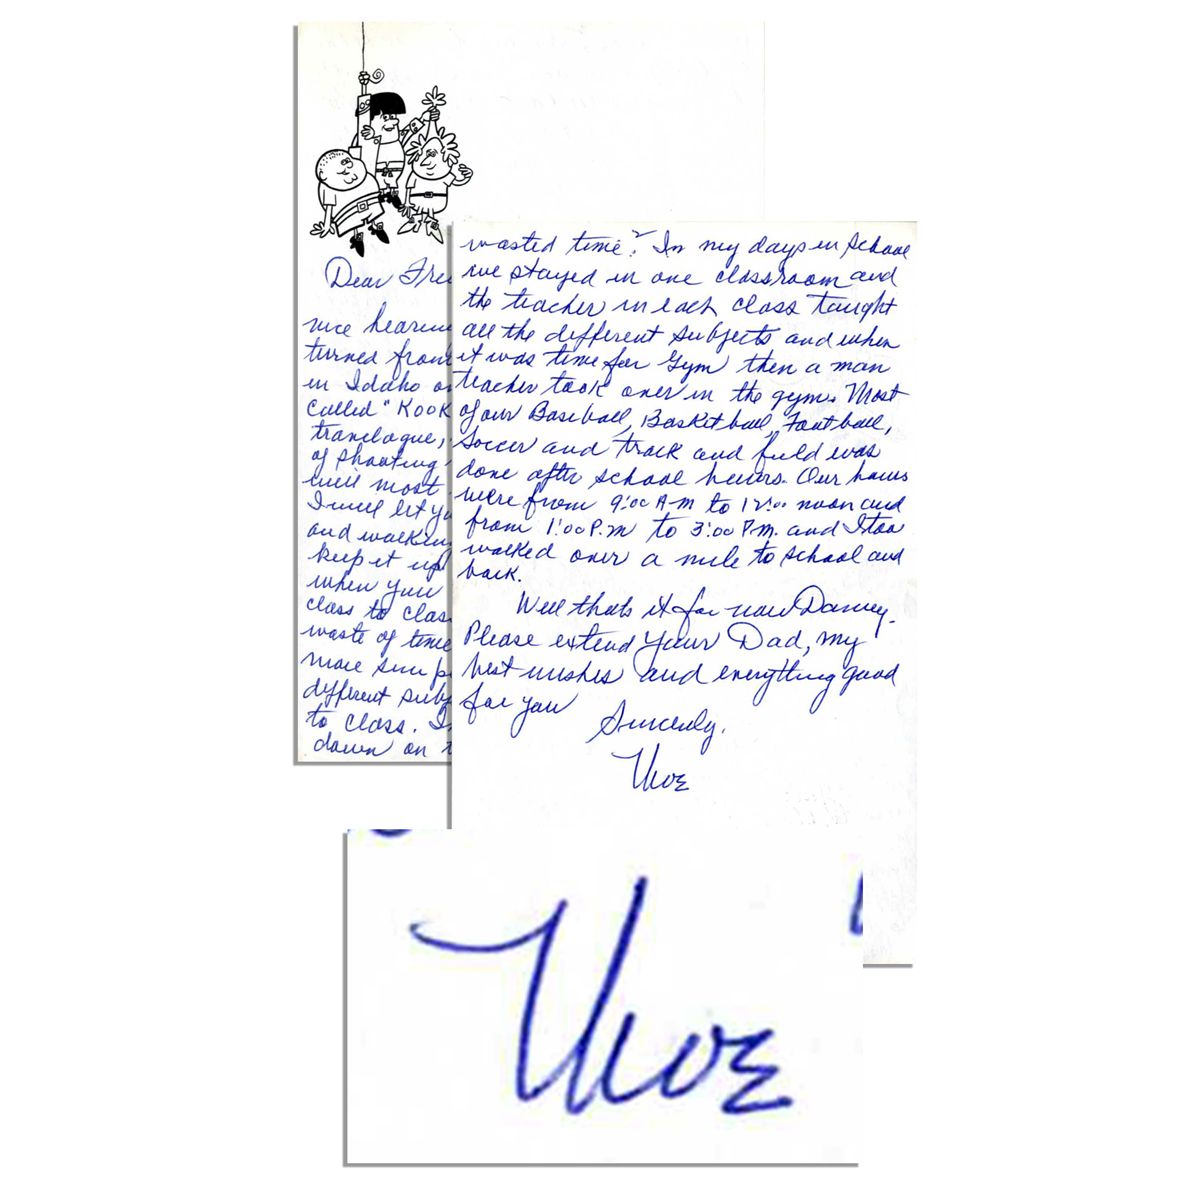 Dear Fre
nice hearin
turned from
in Idaho o
called "KOOK
travelogue,
of shooting
will most
I will let yo
and walking
keep it up
when you
class to clas
waste of time
more sim p
different subj
to class. I
down on t
wasted time? In my days in School
we stayed in one classroom and
the teacher in each class taught
all the different subjects and when
it was time for Gym then a man
teacher took over in the gym. Most
of our Baseball, Basketball, Football,
Soccer and track and field was
done after school hours. Our hours
were from 9:00 A-M to 12:00 noon and
from 1:00 P.M to 3:00 P.M. and I too
walked over a mile to school and
back.
Well thats it for now Danny.
Please extend your Dad, my
best wishes and everything good
for you
Sincerely,
Moe
Moe